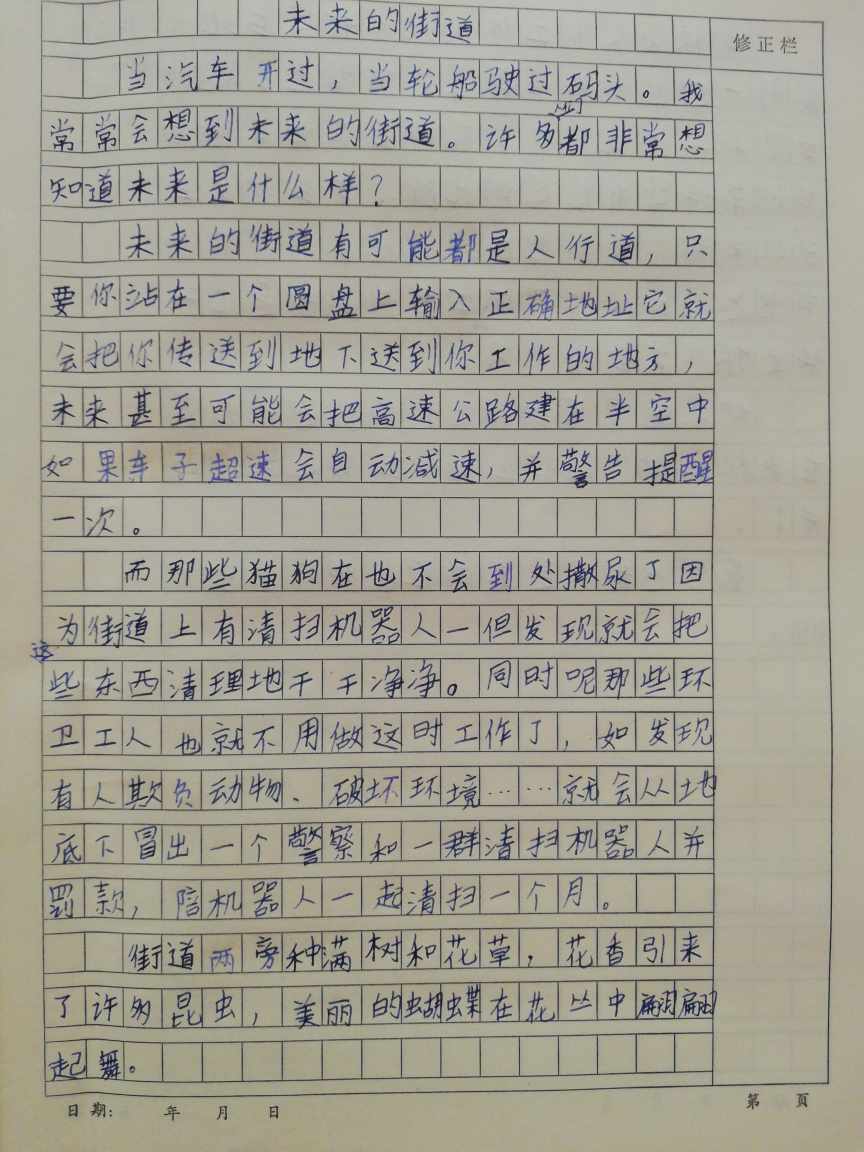 未来的街道
修正栏
当汽车开过，当轮船驶过码头。我
常常会想到未来的街道。许多都非常想
知道未来是什么样？
未来的街道有可能都是人行道，只
要你站在一个圆盘上输入正确地址它就
会把你传送到地下送到你工作的地方，
未来甚至可能会把高速公路建在半空中
如果车子超速会自动减速，并警告提醒
一次。
而那些猫狗在也不会到处撒尿了因
为街道上有清扫机器人一但发现就会把
这
些东西清理地干干净净。同时呢那些环
卫工人也就不用做这时工作了，如发现
有人欺负动物、破坏环境……就会从地
底下冒出一个警察和一群清扫机器人并
罚款，陪机器人一起清扫一个月。
街道两旁种满树和花草，花香引来
了许多昆虫，美丽的蝴蝶在花丛中翩翩
起舞。
日期： 年 月 日
第 页